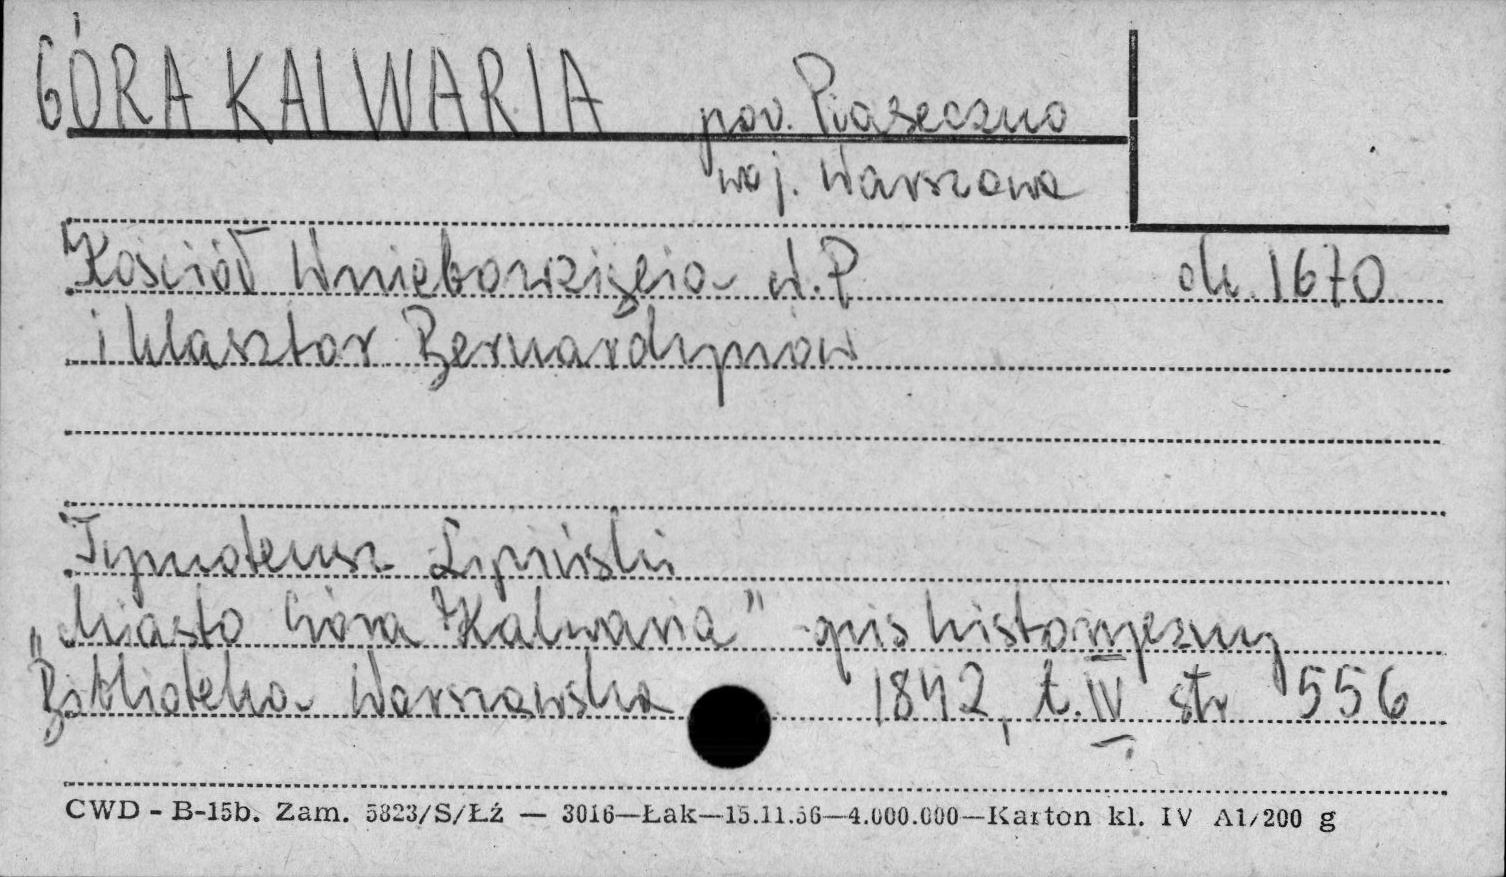 GÓRA KALWARIA pow. Piaseczno
woj. Warszawa
Kościół Wniebowzięcia N.P ok. 1670
i klasztor Bernardynów
Tymoteusz Lipiński
„Miasto Góra Kalwaria" opis historyczny
Biblioteka Warszawska 1842, t. IV str 556
CWD - B-15b. Zam. 5823/S/Łź — 3016—Łak—15.11.56—4.000.000—Karton kl. IV A1/200 g